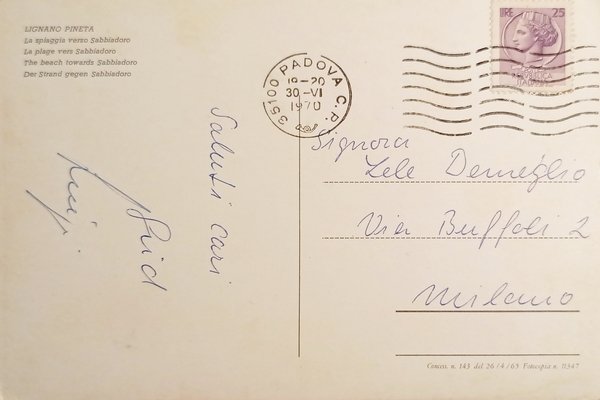 LIGNANO PINETA
La spiaggia verso Sabbiadoro
La plage vers Sabbiadoro
The beach towards Sabbiadoro
Der Strand gegen Sabbiadoro
35100 PADOVA C.P.
19-20
30-VI
1970
LIRE 25
REPUBBLICA
ITALIANA
Saluti cari
Luigi
Signora
Lele Demeglio
Via Buffoli 2
Milano
Concess. n. 143 del 26/4/65 Fotocopia n. 11347